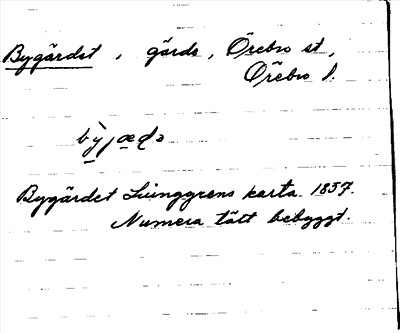 Bygärdet, gärde, Örebro st,
Örebro l.
Bygärdet Ljunggrens karta 1857.
Numera tätt bebyggt.